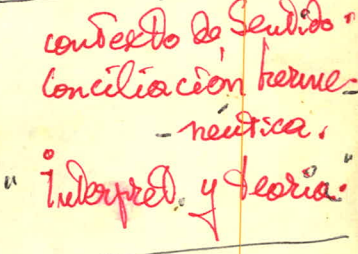 contexto de Sentido"
Conciliación herme-
-néutica.
" Interpret. y teoria."